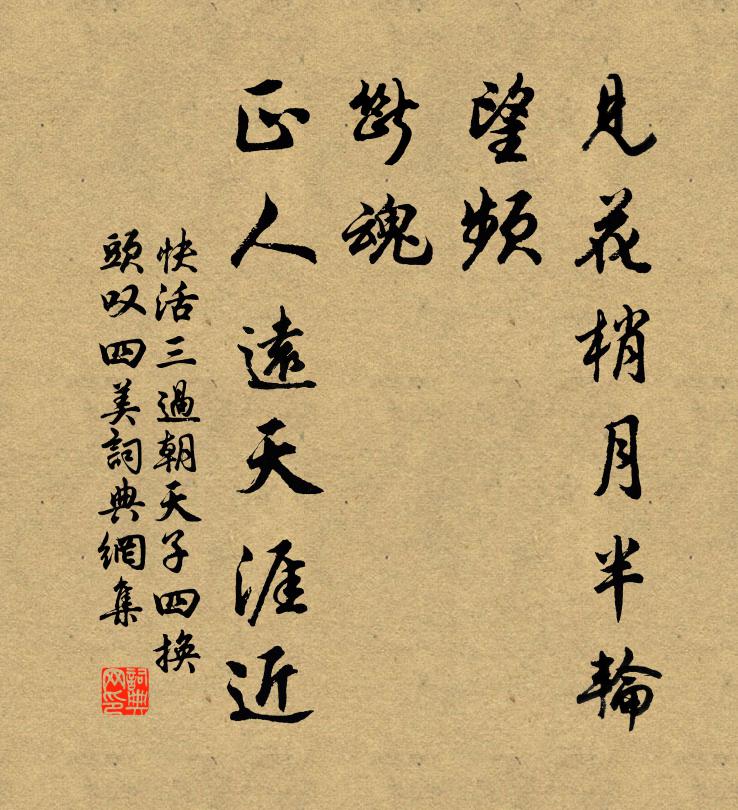 見花梢月半輪
望頻
斷魂
正人遠天涯近
快活三過朝天子四換
頭叹四美詞典網集
詞典
网印